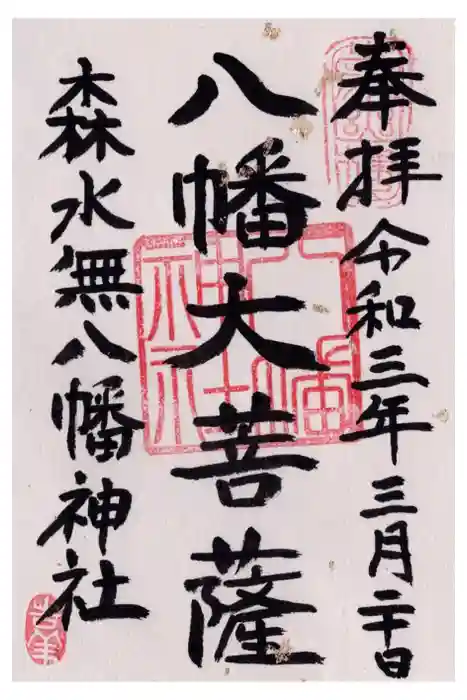 奉拝 令和三年三月二十日
八幡大菩薩
森水無八幡神社